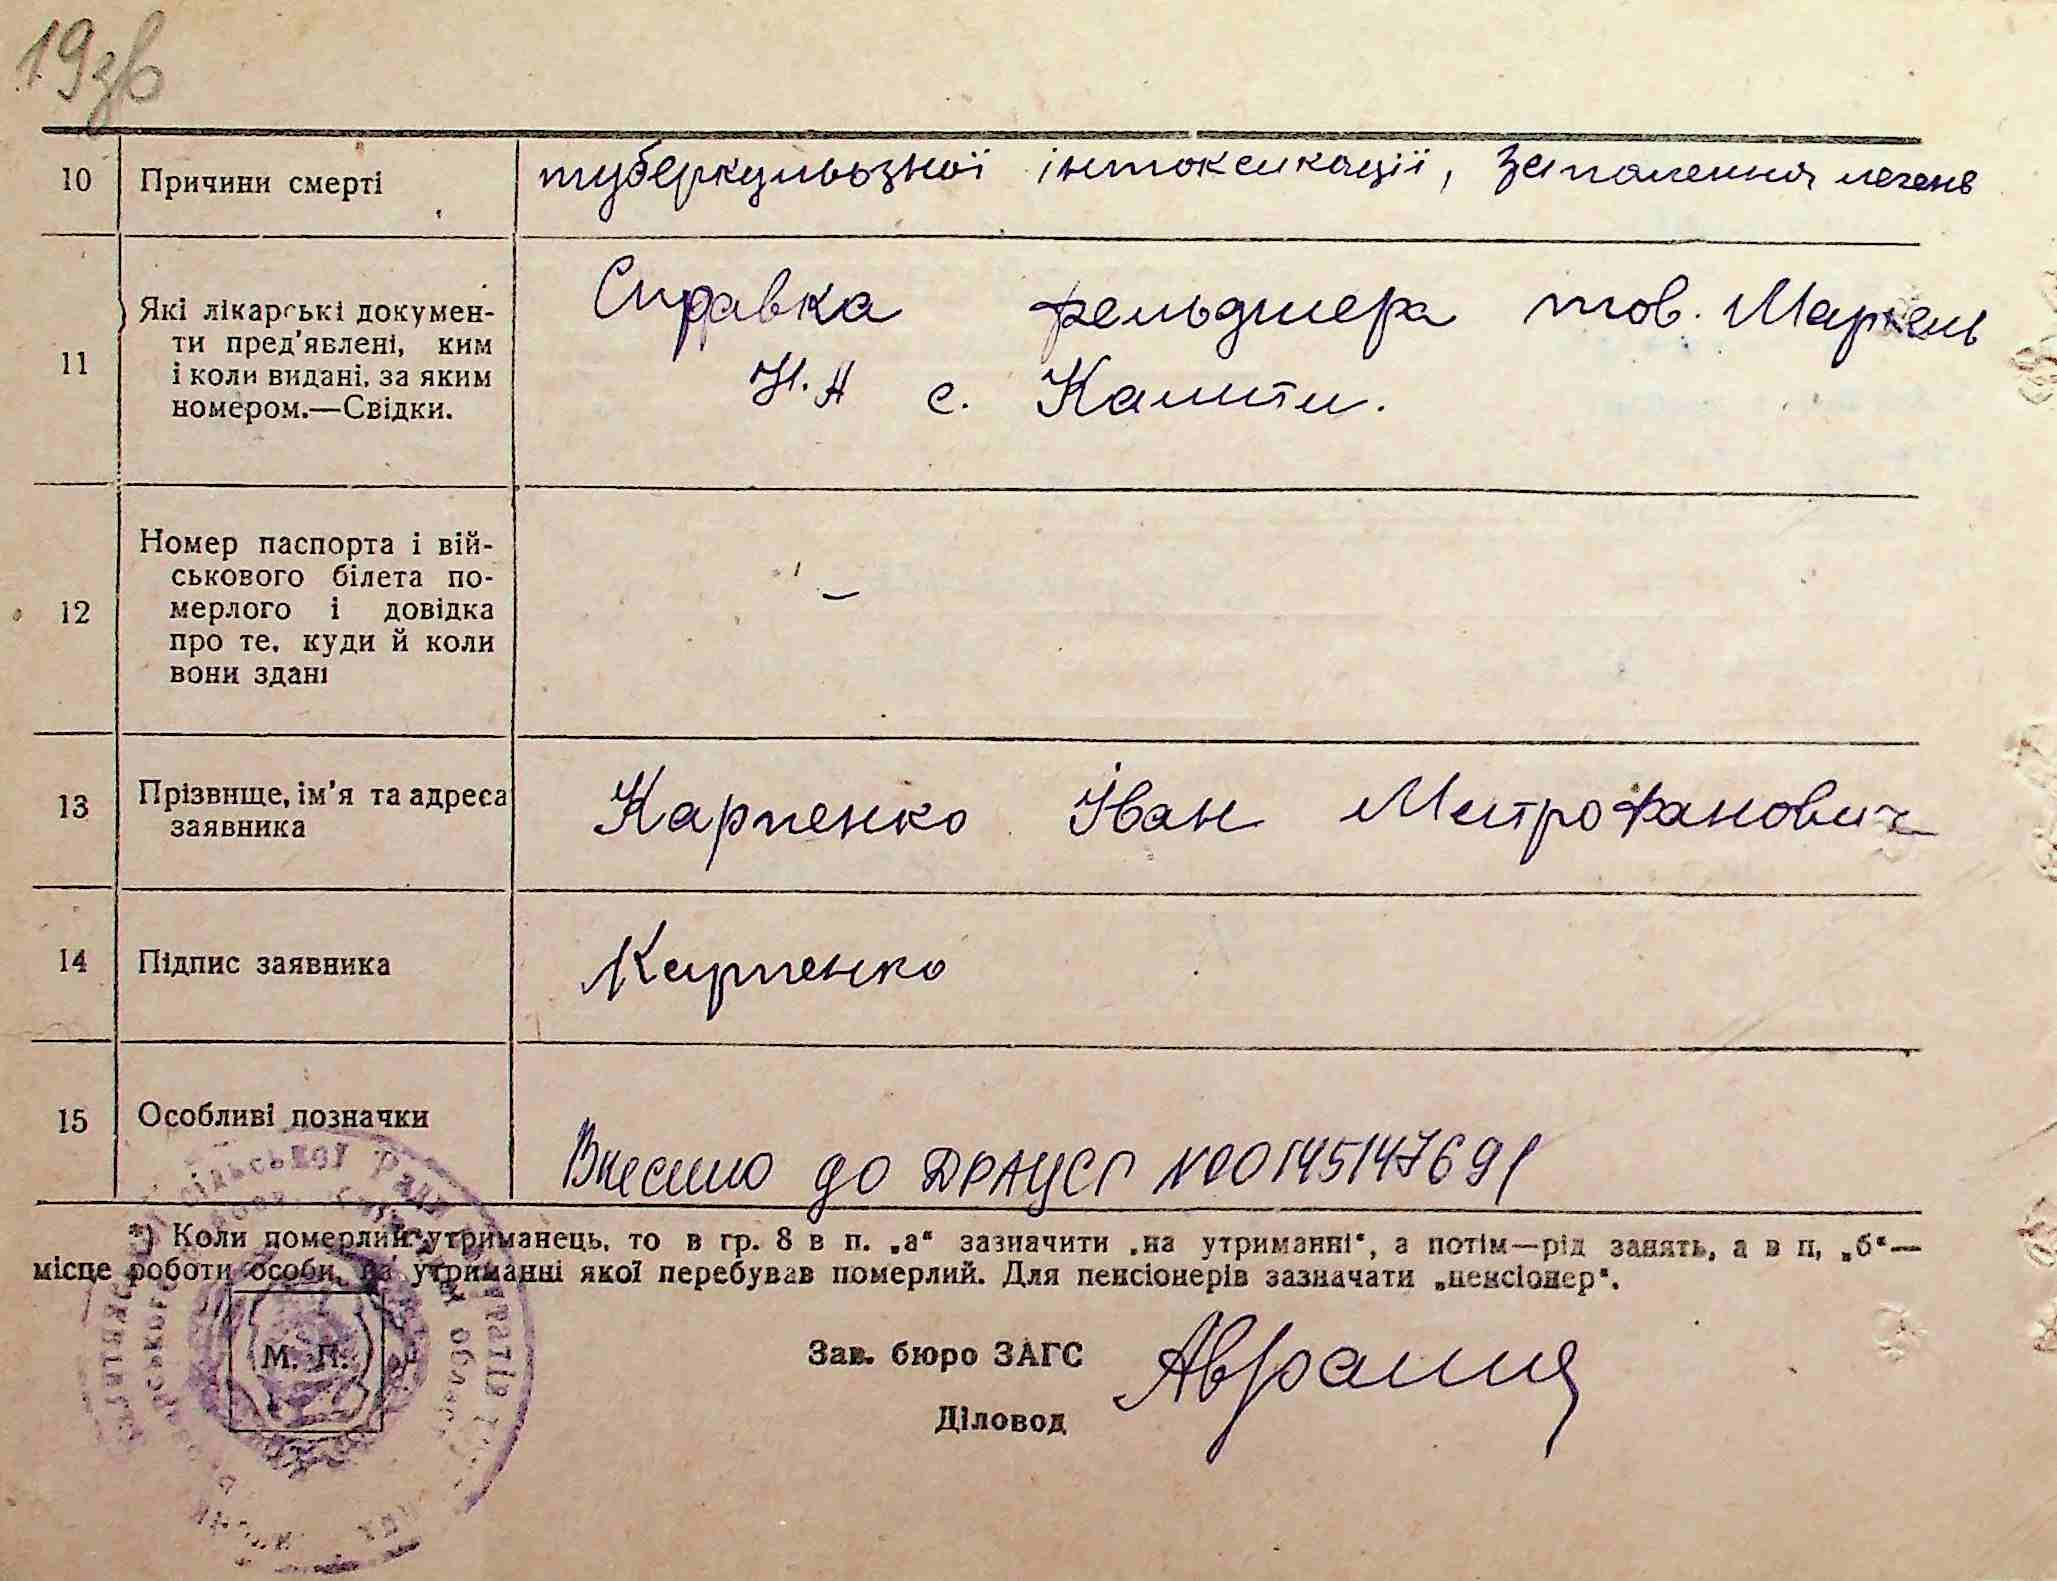 19зв
10 Причини смерті туберкульозної інтоксикації, запалення легень
11 Які лікарські докумен-
ти пред'явлені, ким
і коли видані, за яким
номером.—Свідки.
Справка фельдшера тов. Маркель
Н.А с. Калити.
12 Номер паспорта і вій-
ськового білета по-
мерлого і довідка
про те, куди й коли
вони здані
–
13 Прізвище, ім'я та адреса
заявника
Карпенко Іван Митрофанович
14 Підпис заявника Карпенко
15 Особливі позначки
Внесено до ДРАЦСГ №00145147691
*) Коли померлий утриманець, то в гр. 8 в п. „а“ зазначити „на утриманні“, а потім—рід занять, а в п, „б“—
місце роботи особи, на утриманні якої перебував померлий. Для пенсіонерів зазначати „пенсіонер“.
М. П.
Зав. бюро ЗАГС
Діловод
сільської Ради